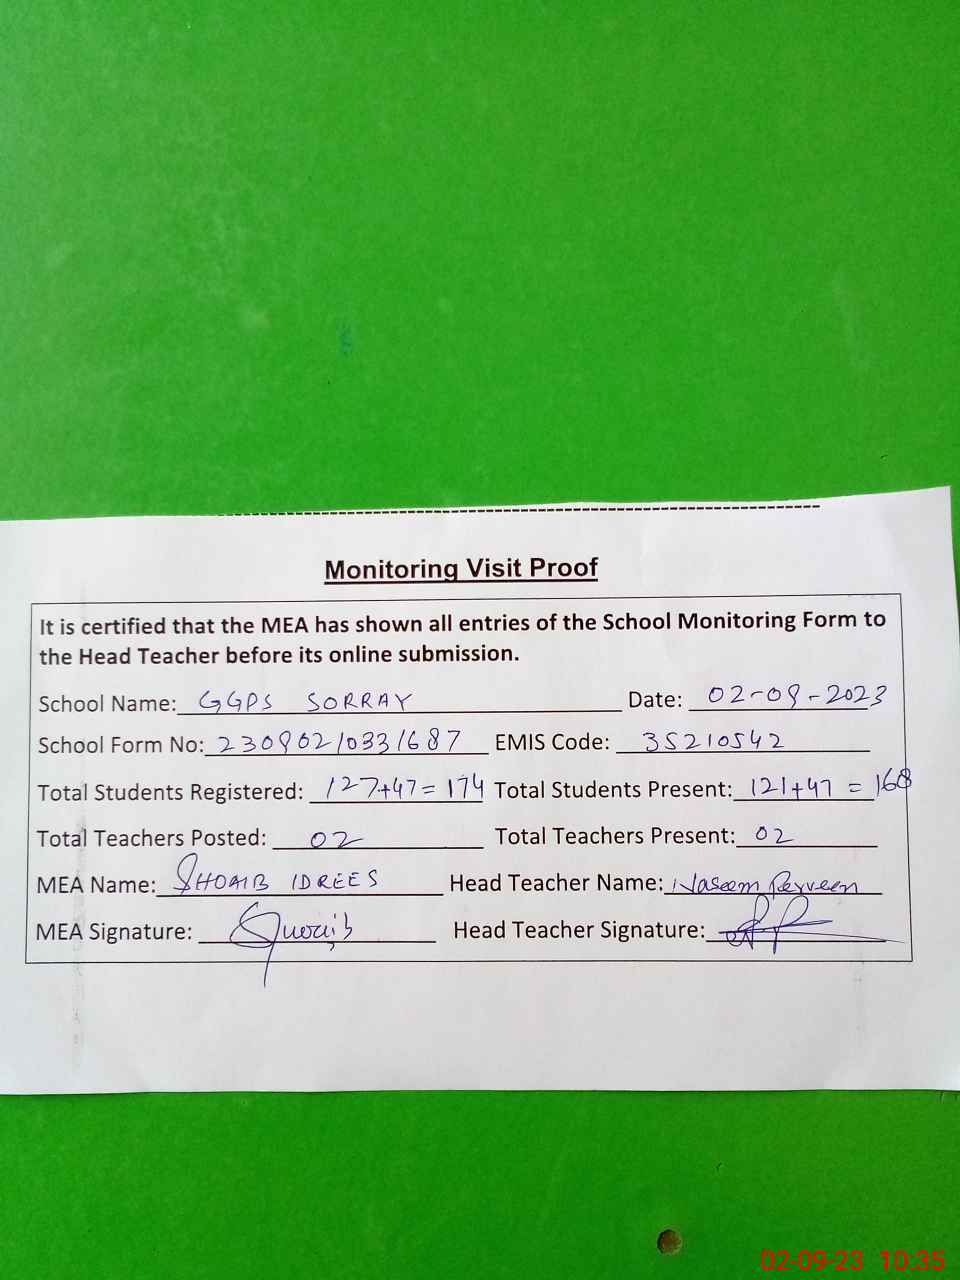 Monitoring Visit Proof
It is certified that the MEA has shown all entries of the School Monitoring Form to
the Head Teacher before its online submission.
School Name: GGPS SORRAY Date: 02-09-2023
School Form No: 230902/033/687 EMIS Code: 35210542
Total Students Registered: 127+47=174 Total Students Present: 121+47=168
Total Teachers Posted: 02 Total Teachers Present: 02
MEA Name: SHOAIB IDREES Head Teacher Name: Naseem Perveen
MEA Signature: Shoaib Head Teacher Signature:
02-09-23 10:35